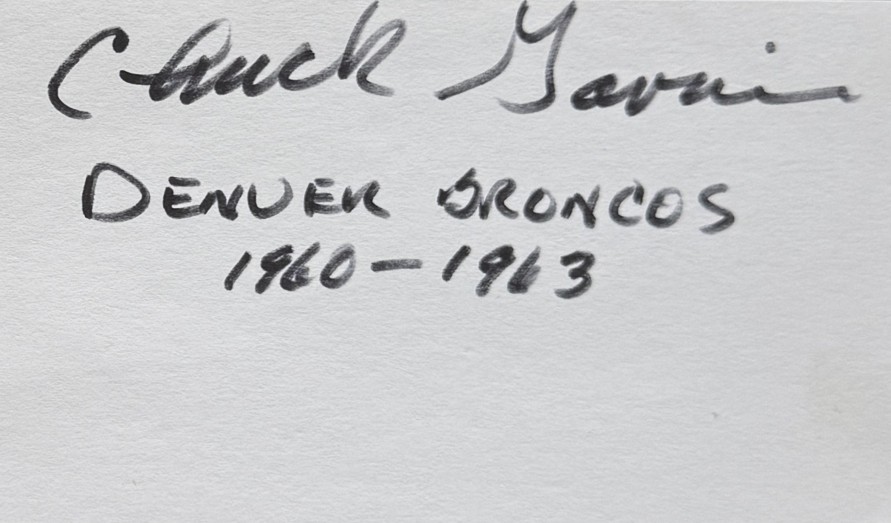 Chuck Gavin
DENVER BRONCOS
1960-1963